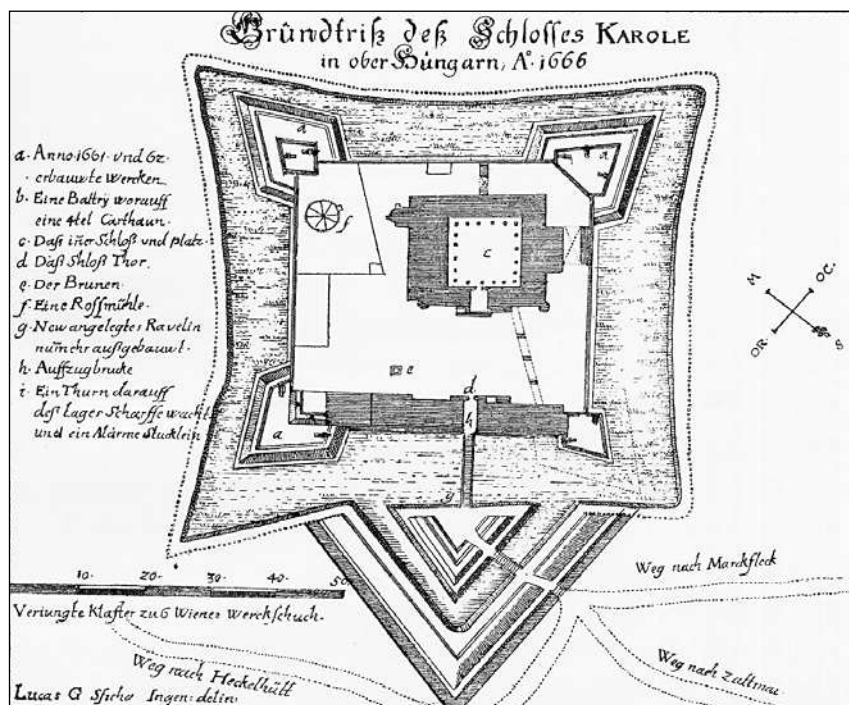 Gründtriß deß Schlosses KAROLE
in ober Hüngarn, Aº. 1666
a. Anno 1661. vnd 62.
erbauwte Wercken
b. Eine Battrÿ worauff
eine 4tel Carthaun.
c. Daß iñer Schloß vnd platz.
d Daß Shloß Thor.
e. Der Brunen.
f. Eine Rossmühle.
g. New angelegtes Ravelin
nüm̃ehr außgebauwt.
h. Auffzugbrucke
i. Ein Thurn darauff
deß Lager Scharffe wacht
und ein Alärme Stucklein
a
a
f
c
e
d
h
a
g
M
OC.
OR
S
10. 20. 30. 40. 50
Veriungte Klafter zu 6 Wiener Werckschuch.
Weg nach Marckfleck
Weg nach Heckelhütt
Weg nach Zattmau
Lucas G Ingen: delin